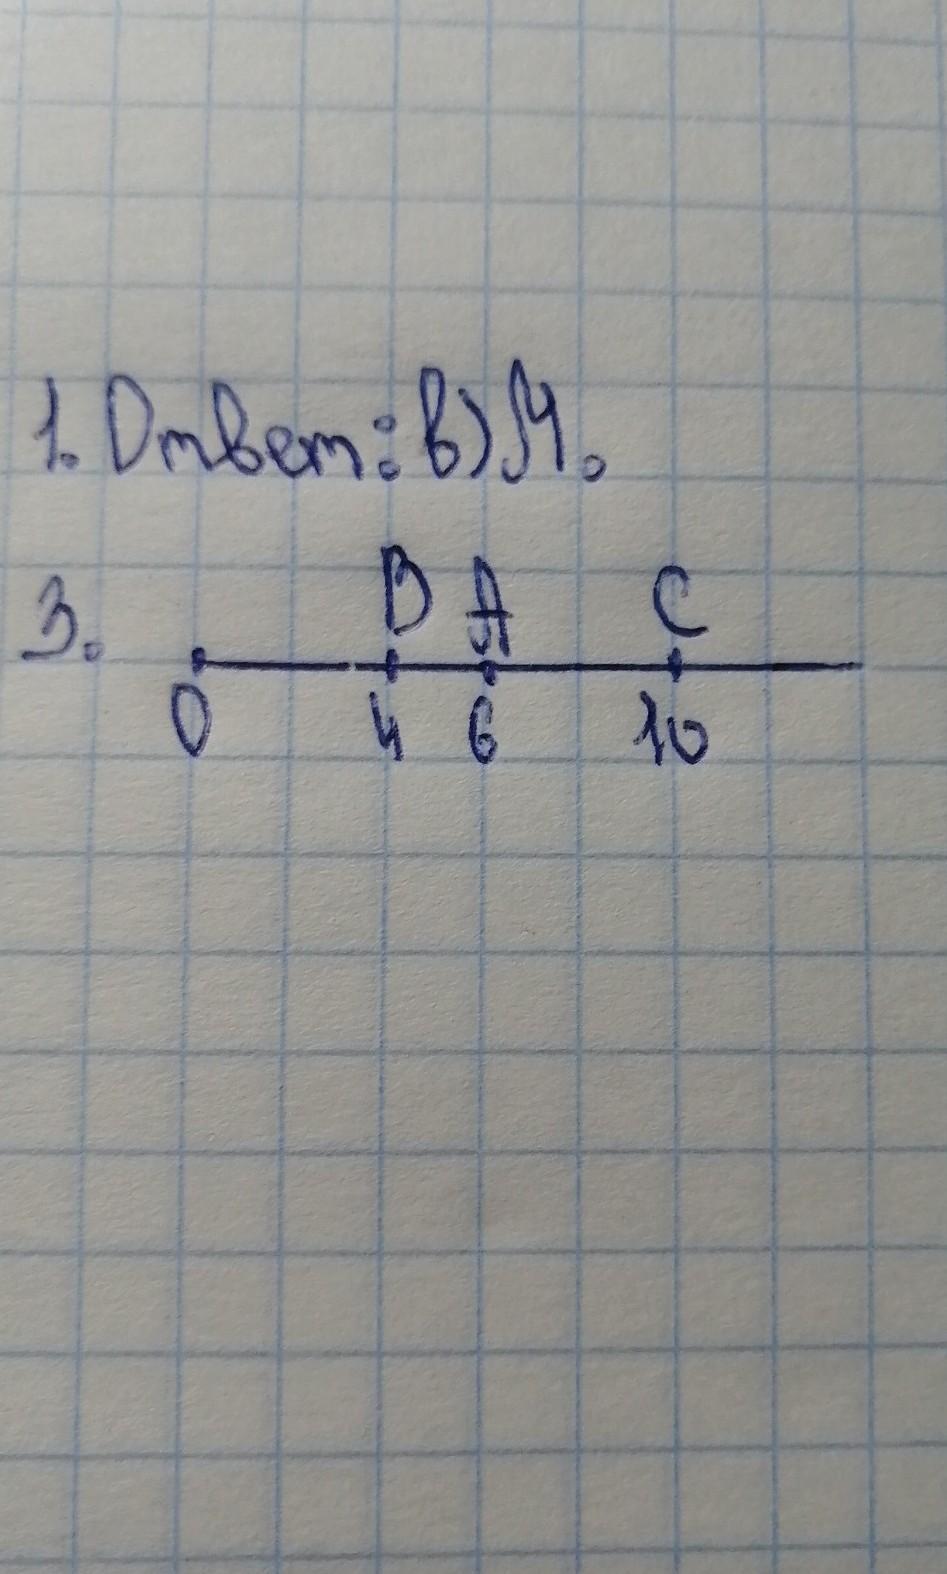 1. Ответ: в) М.
3. B A C
0 4 6 10